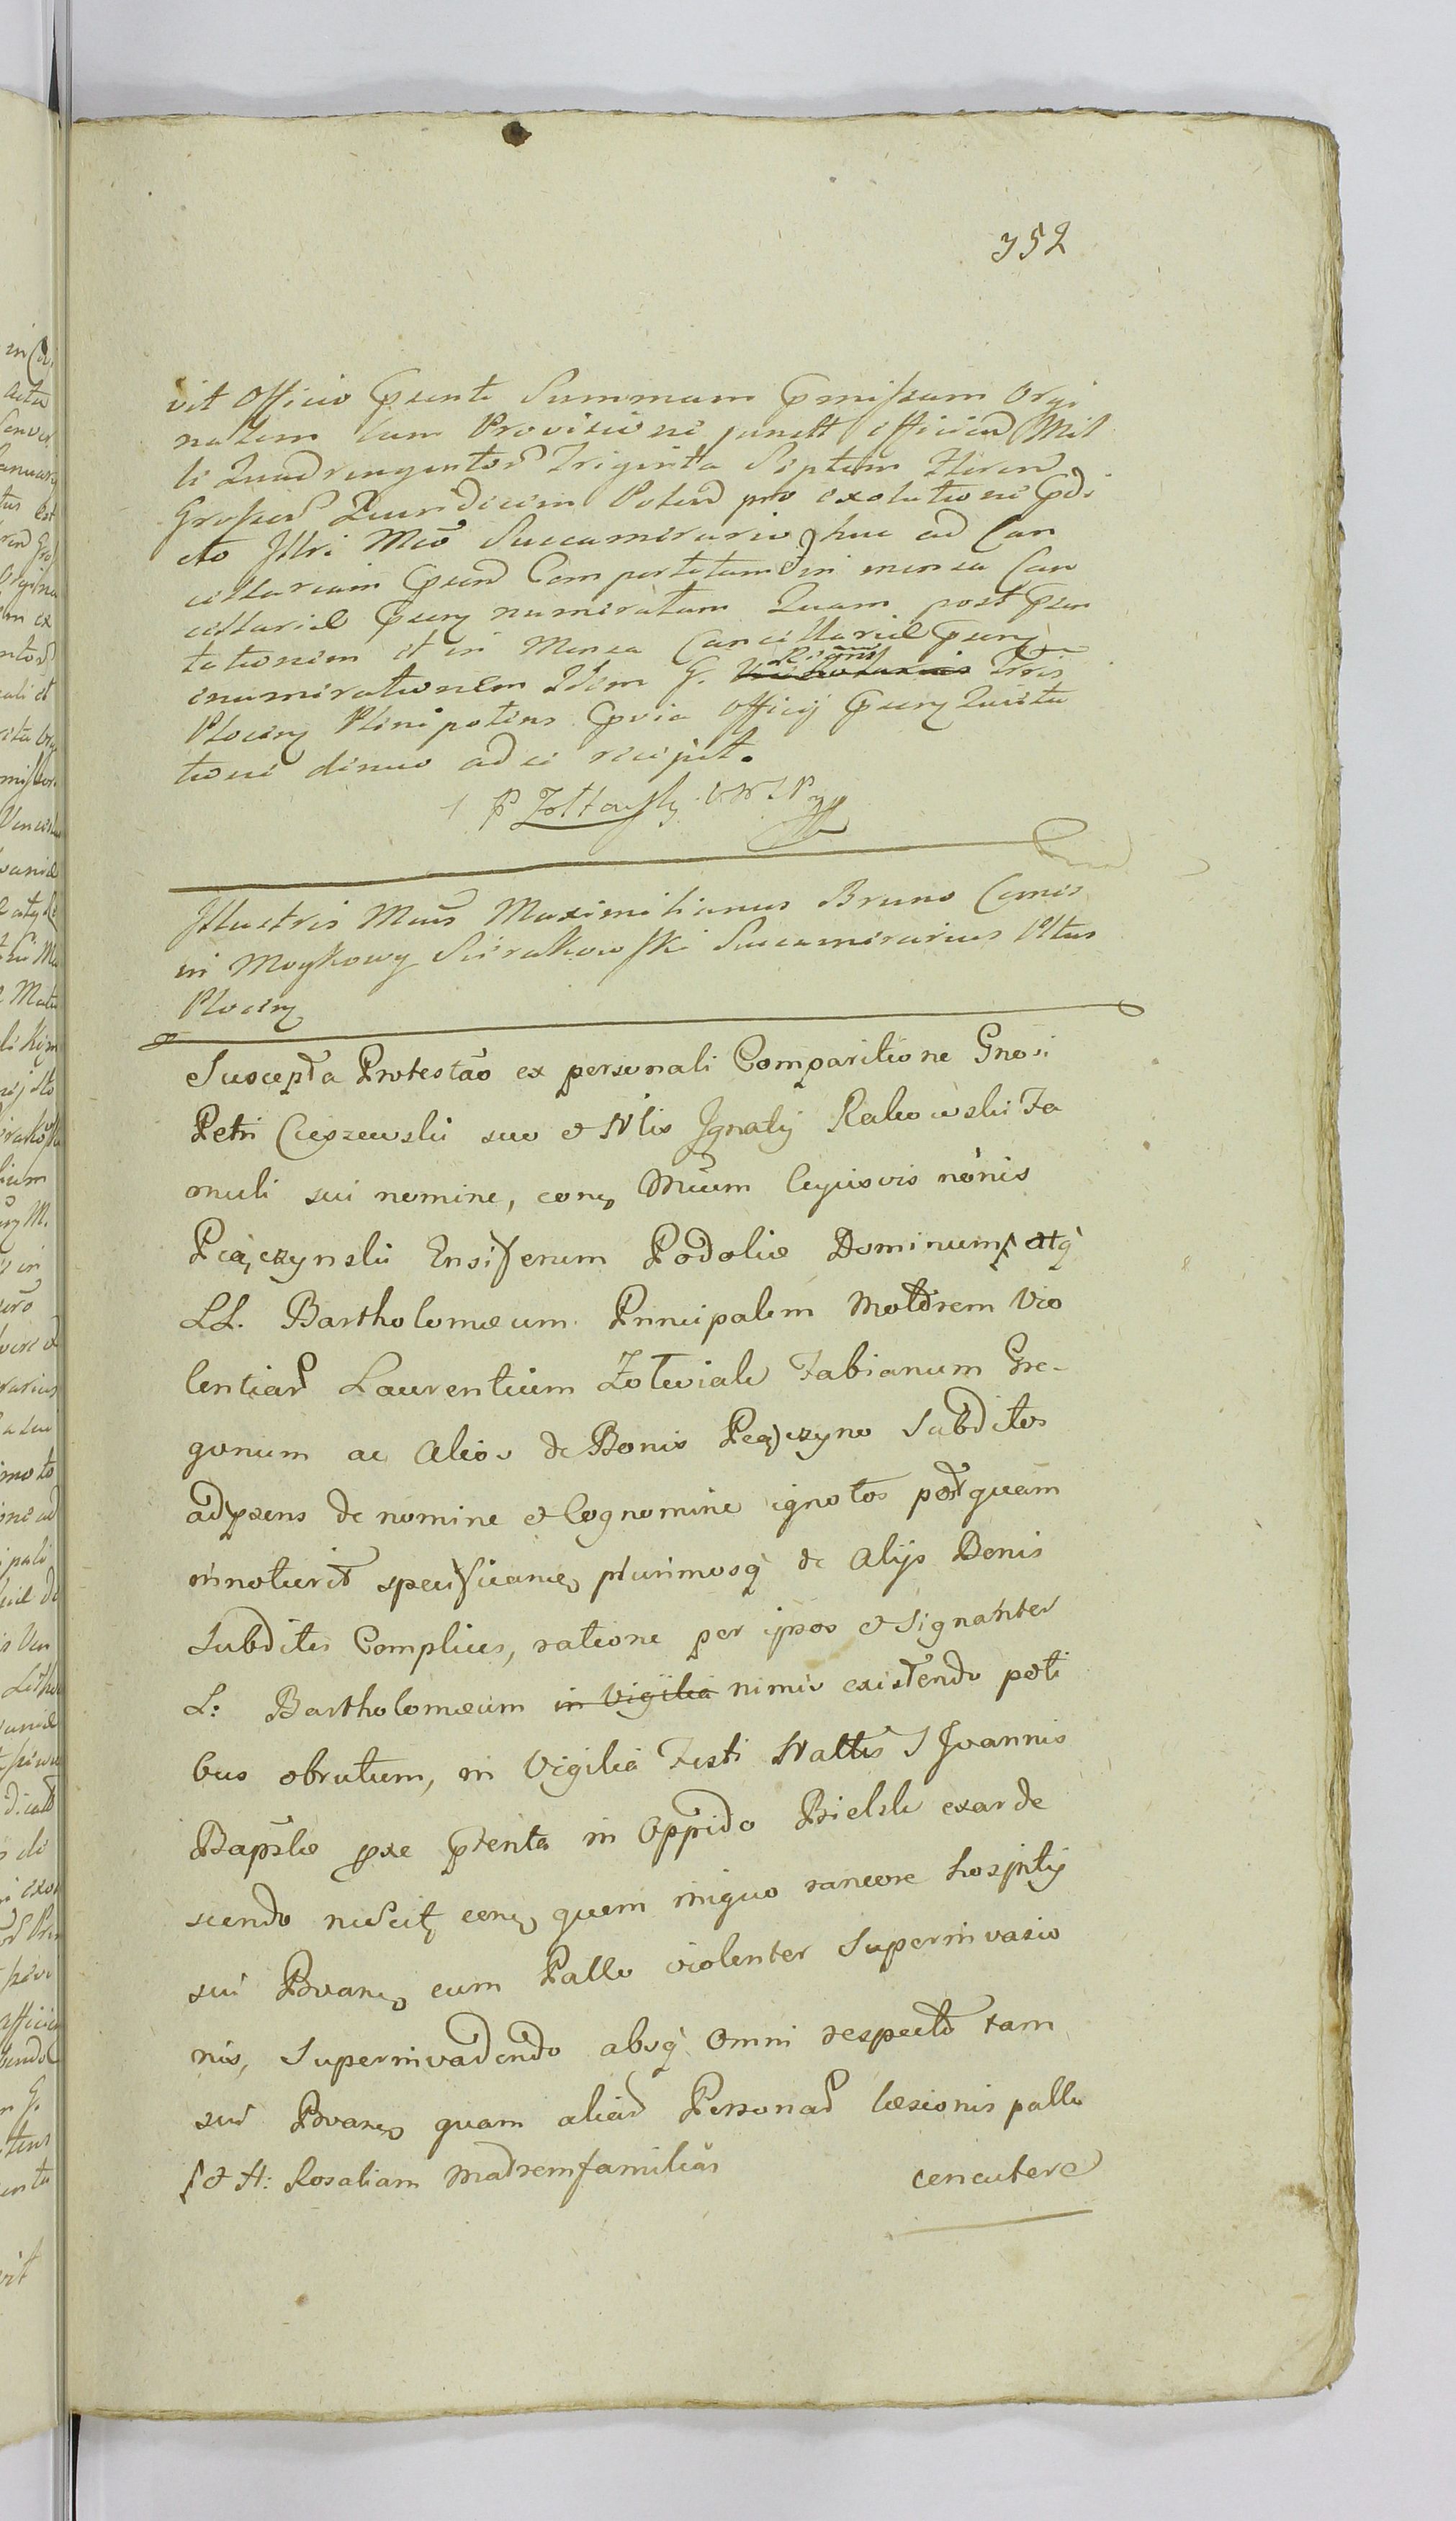 352
vit Officio Gsenti Summam Gmissam Orgi
nalem cum Provisione junctt efficien Mil
li Quadringentor Triginta Septem flren
Grosser Quindecim Poten pro exolutione Gdi
cto Jllri Mco Succamerario huc ad Can
cellariam Gsen Comportatam in mensa Can
cellariæ Gseng numeratam Quam post Gsen
tationem et in Mensa Cancellariæ Gseng
enumerationem Idem G. Trris
Ploceng Plenipotens Gvia Officij Gseng Quieta
tione denuo ad se recipit.
Illustris Mcus Maximilianus Bruno Comes
in Moykowy Sierakowski Succamerarius Pltus
Plocen
Suscepta Protestao ex personali Comparitione Gnosi
Petri Cieszewski suo et Nlis Jgnatij Rakowski Fa
muli sui nomine, con Mcum Cujusvis nonis
Piączynski Ensiferum Podoliæ Dominum atq
LL. Bartholomæum Principalem Motorem Vio
lentiar Laurentium Zolwiak Fabianum Gre-
gorium ac Alios de Bonis Pęczyno Subditos
adpræns de nomine et Cognomine ignotos postquam
innotuerit specificanes plurimosq de Alijs Bonis
Subditos Complices, ratione per ipsos et signanter
L: Bartholomæum in Vigilia nimio existendo poti
bus obrutum, in Vigilia Festi Nattis S Joannis
Baptæ pxe pterita in Oppido Bielsk exarde
scendo quem iniquo rancore hospitij
sui Pvanes cum Pallo violenter Superinvasio
nis, Superinvadendo absq Omni respectu tam
sui Pvanes quam aliar Personar læsionis pallo
et H: Rosaliam Matremfamilias
concutere